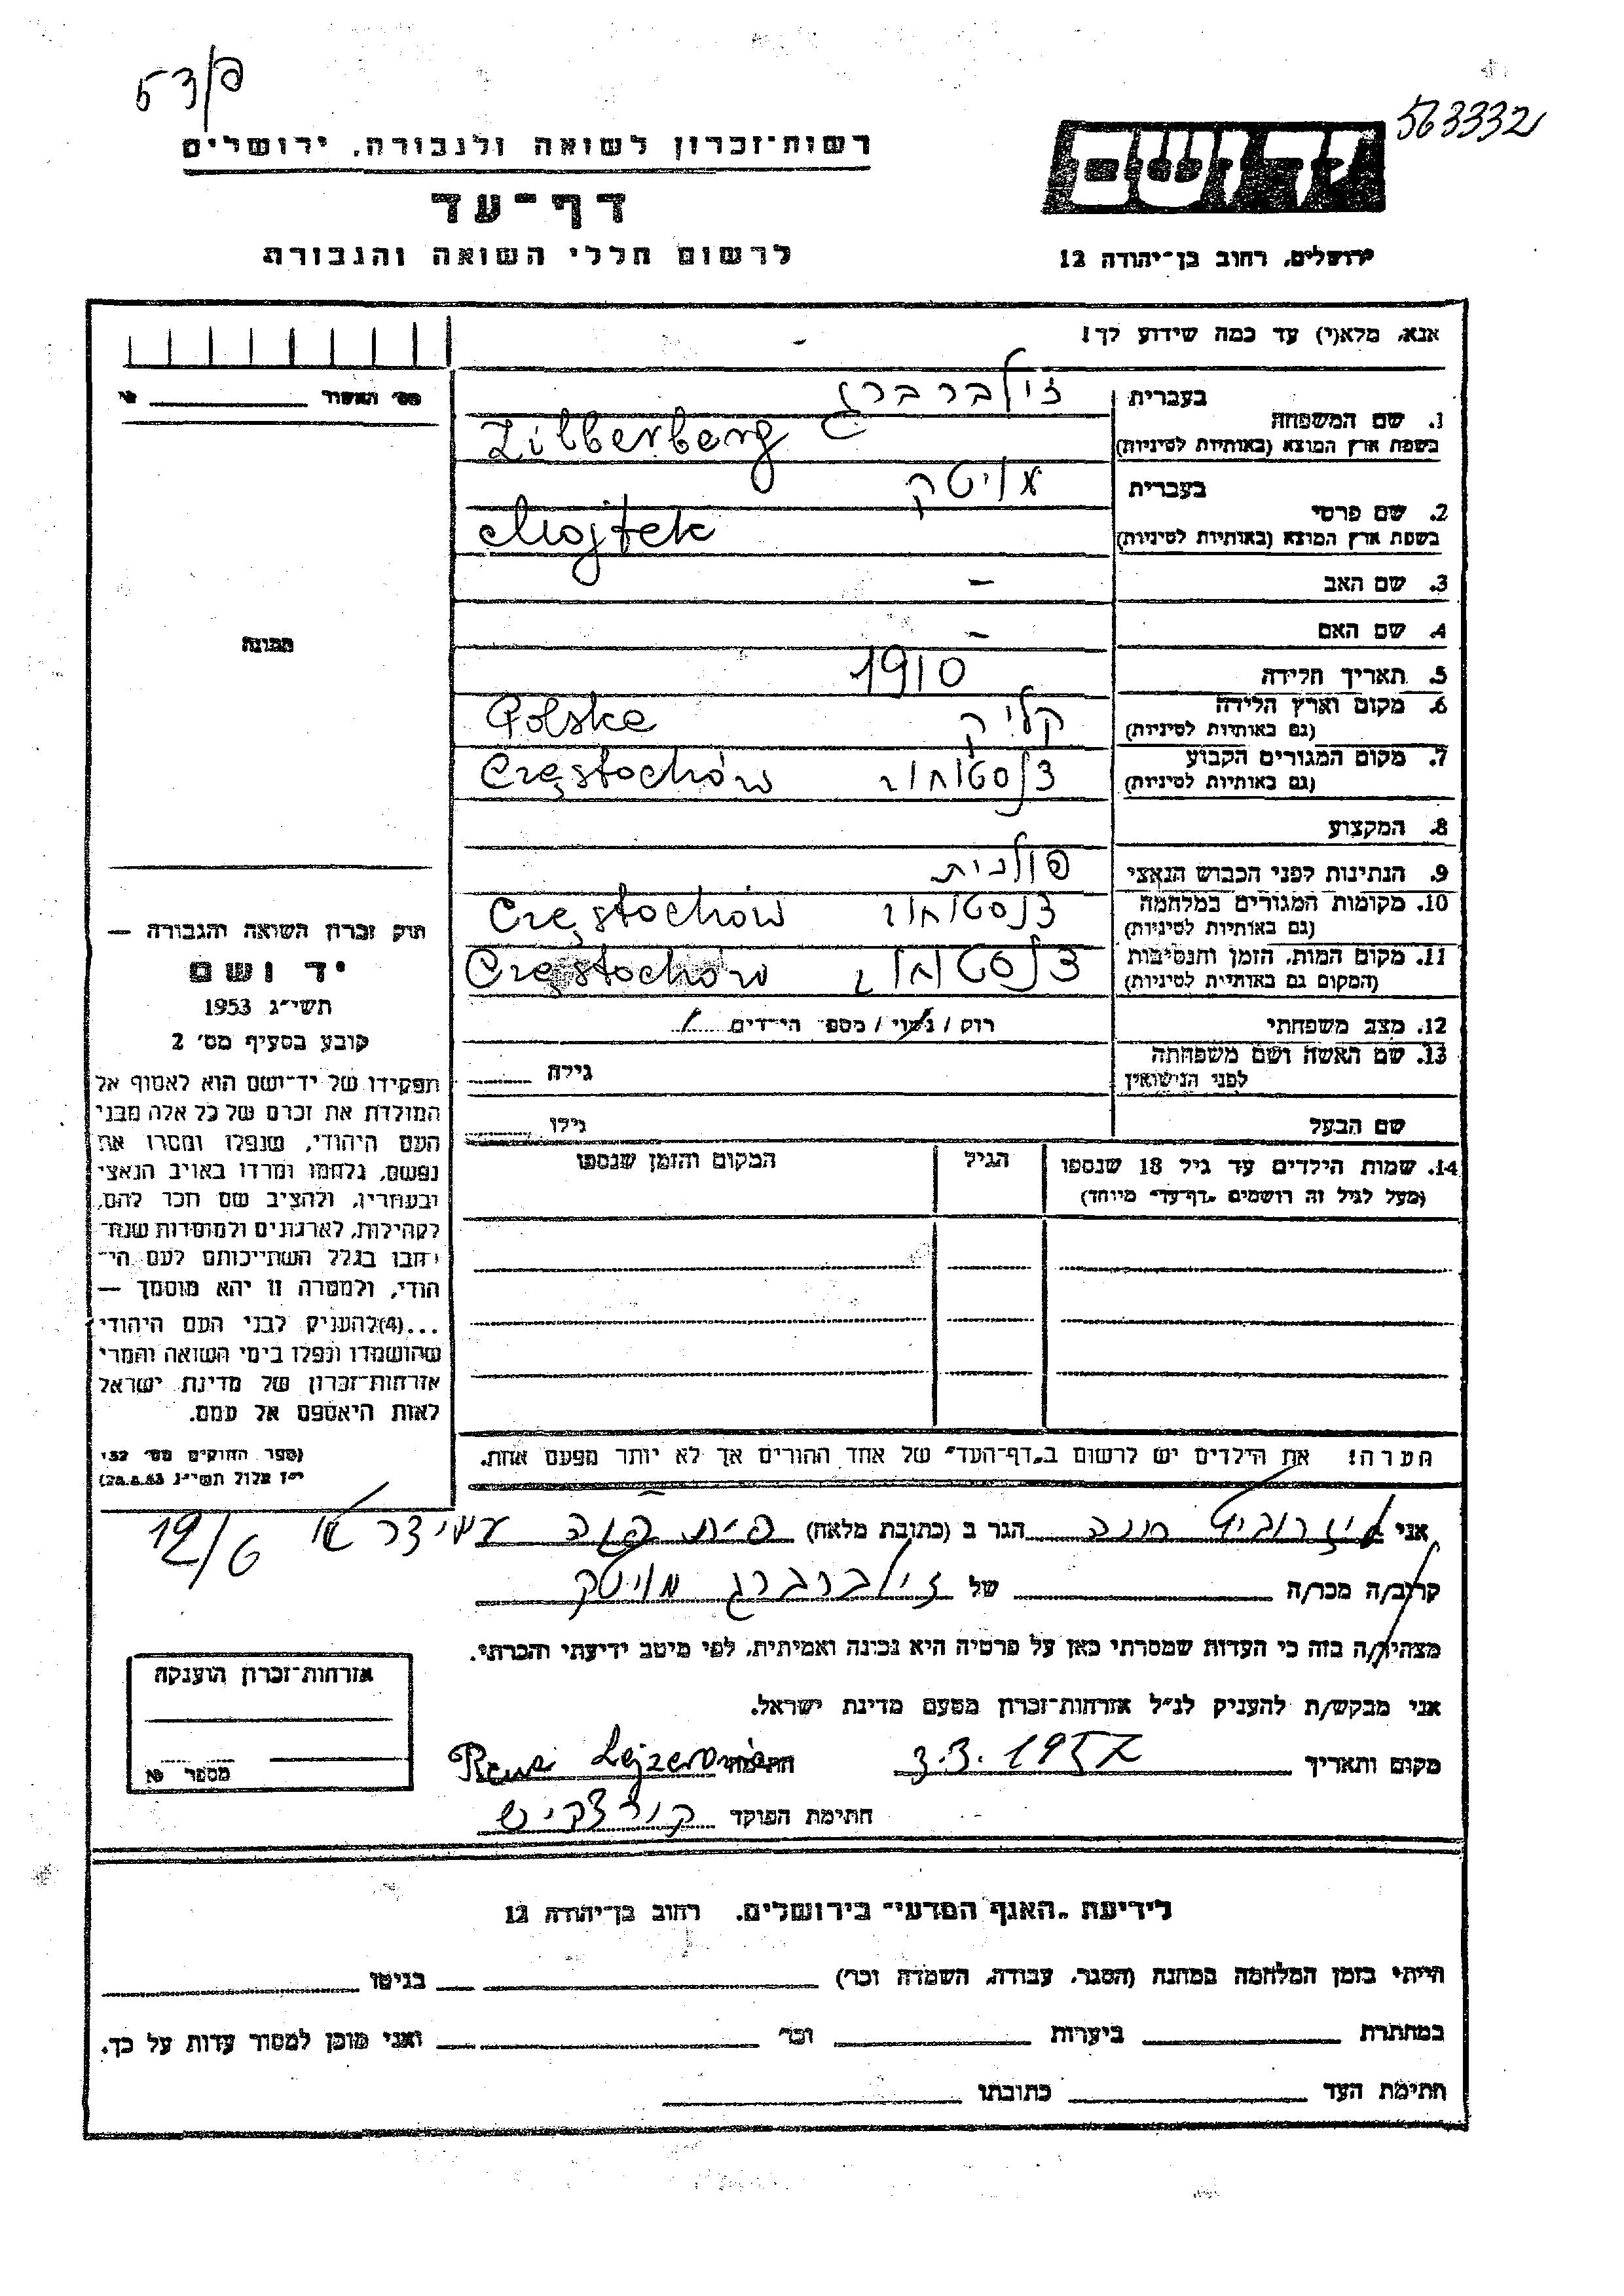 563332
רשות-זכרון לשואה ולגבורה, ירושלים
דף-עד
לרשום חללי השואה והגבורה
ירושלים, רחוב בן-יהודה 12
אנא, מלא(י) עד כמה שידוע לך!
מס' האשור
1. שם המשפחה בעברית זילברברג
בשפת ארץ המוצא (באותיות לטיניות) Zilberberg
2. שם פרטי בעברית מויטק
בשפת ארץ המוצא (באותיות לטיניות) Mojtek
3. שם האב –
4. שם האם –
5. תאריך הלידה 1910
6. מקום וארץ הלידה
(גם באותיות לטיניות) Polska
7. מקום המגורים הקבוע צ'נסטוחוב
(גם באותיות לטיניות) Częstochów
8. המקצוע
9. הנתינות לפני הכבוש הנאצי פולנית
10. מקומות המגורים במלחמה צ'נסטוחוב
(גם באותיות לטיניות) Częstochów
11. מקום המות, הזמן והנסיבות צ'נסטוחוב
(המקום גם באותיות לטיניות) Częstochów
12. מצב משפחתי רוק / נשוי / מספר הילדים 1
13. שם האשה ושם משפחתה
לפני הנישואין גילה
שם הבעל גילו
14. שמות הילדים עד גיל 18 שנספו הגיל המקום והזמן שנספו
(מעל לגיל זה רושמים "דף-עד" מיוחד)
הערה! את הילדים יש לרשום ב"דף-העד" של אחד ההורים אך לא יותר מפעם אחת.
תמונה
חוק זכרון השואה והגבורה —
יד ושם
תשי"ג 1953
קובע בסעיף מס' 2
תפקידו של יד-ושם הוא לאסוף אל
המולדת את זכרם של כל אלה מבני
העם היהודי, שנפלו ומסרו את
נפשם, נלחמו ומרדו באויב הנאצי
ובעוזריו, ולהציב שם וזכר להם,
לקהילות, לארגונים ולמוסדות שנח-
רבו בגלל השתייכותם לעם הי-
הודי, ולמטרה זו יהא מוסמך —
...(4) להעניק לבני העם היהודי
שהושמדו ונפלו בימי השואה והמרי
אזרחות-זכרון של מדינת ישראל
לאות היאספם אל עמם.
(ספר החוקים מס' 132,
י"ז אלול תשי"ג 28.8.53)
אני לייזרוביץ חנה הגר ב (כתובת מלאה) 19/6
קרוב/ה מכר/ה של זילברברג מויטק
מצהיר/ה בזה כי העדות שמסרתי כאן על פרטיה היא נכונה ואמיתית, לפי מיטב ידיעתי והכרתי.
אני מבקש/ת להעניק לנ"ל אזרחות-זכרון מטעם מדינת ישראל.
מקום ותאריך 3.3.1957 חתימה
חתימת הפוקד
אזרחות-זכרון הוענקה
מספר
לידיעת "האגף המדעי" בירושלים, רחוב בן-יהודה 12
הייתי בזמן המלחמה במחנה (הסגר, עבודה, השמדה וכו') בגיטו
במחתרת ביערות וכו' ואני מוכן למסור עדות על כך.
חתימת העד כתובתו